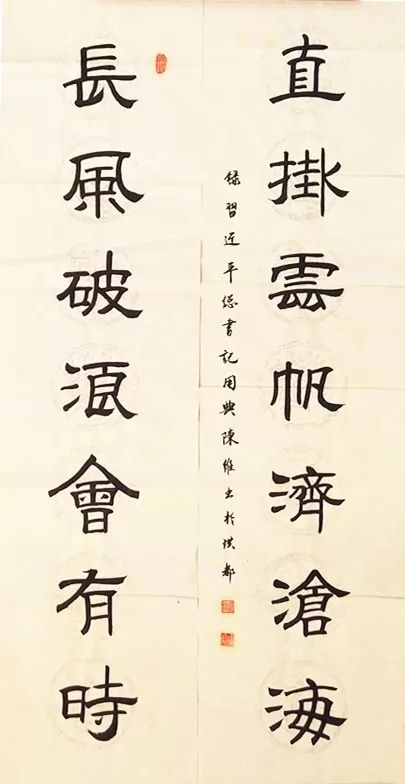 長風破浪會有時
直掛雲帆濟滄海
錄習近平總書記用典陳維书於洪都